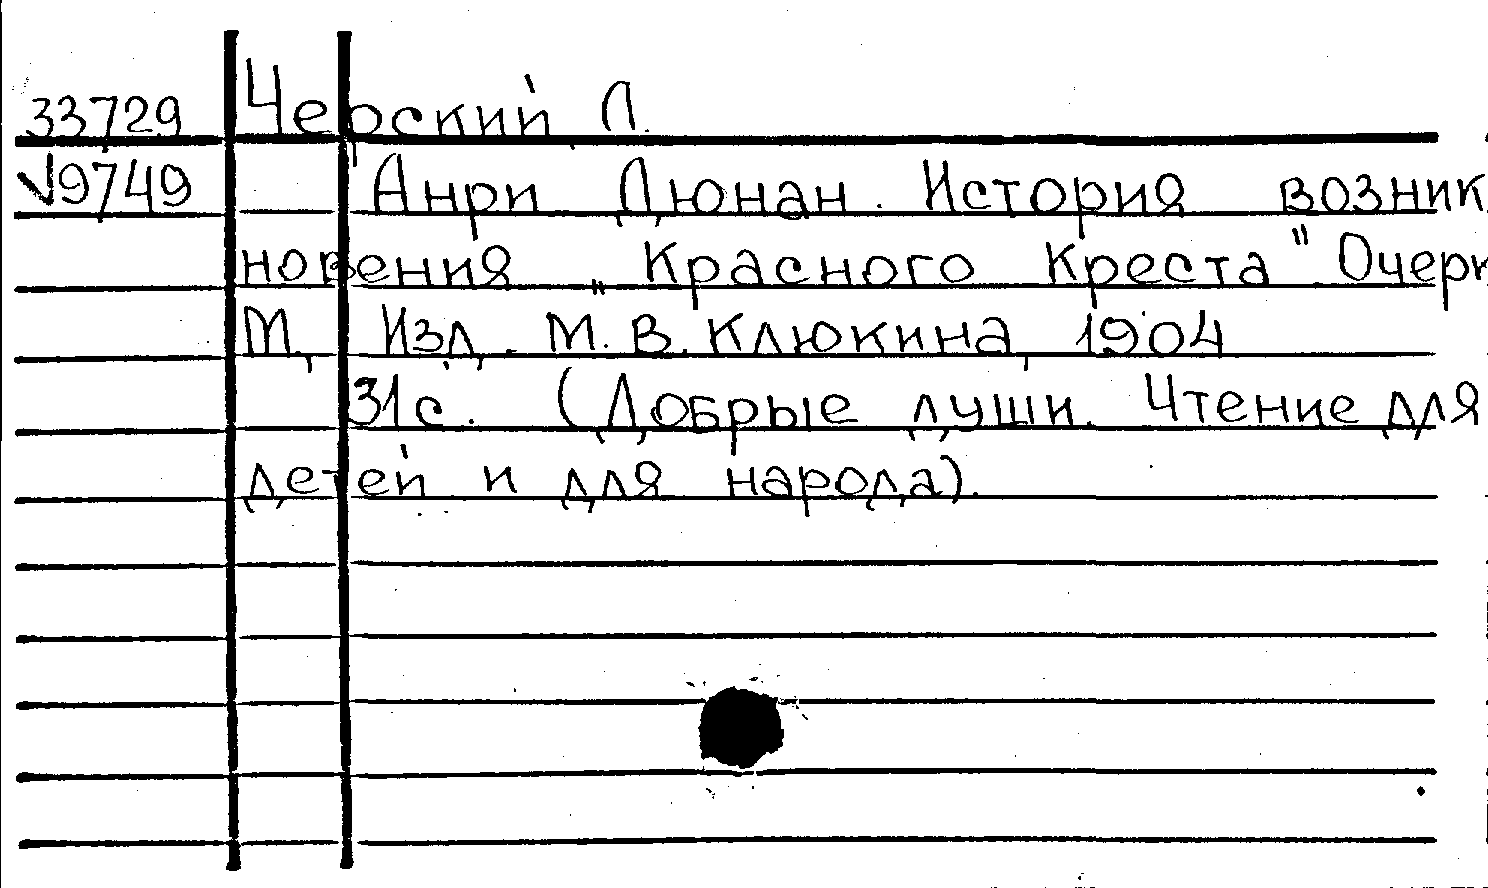 33729 Черский Л.
√9749 Анри Дюнан. История возник
новения „Красного Креста" Очерк
М, Изд. М. В. Клюкина, 1904
31с. (Добрые души. Чтение для
детей и для народа).